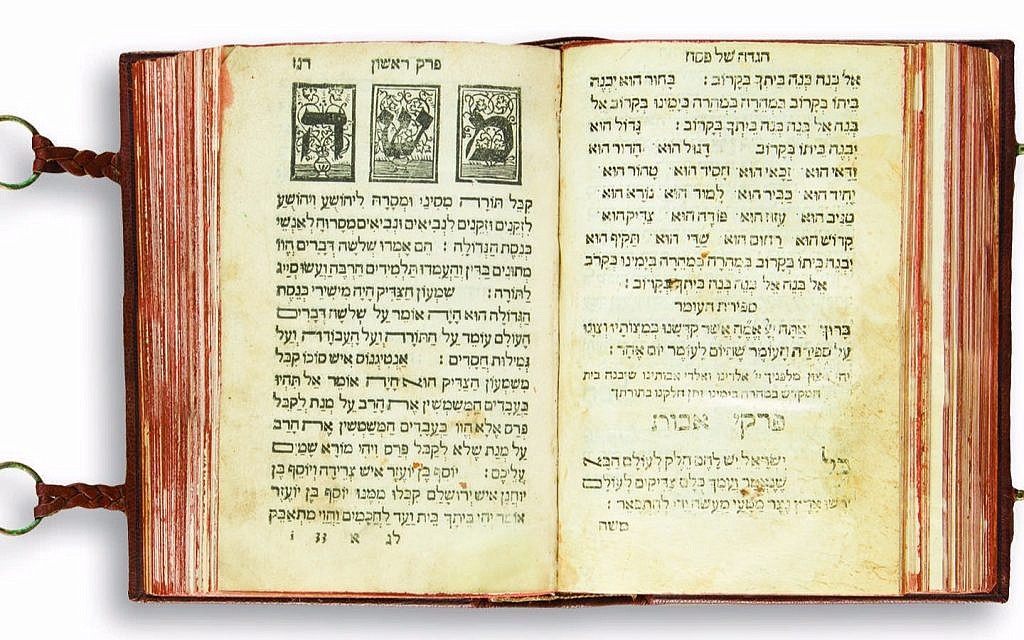 הגדה של פסח
אל בנה בנה ביתך בקרוב : בחור הוא יבנה
ביתו בקרוב במהרה במהרה בימינו בקרוב אל
בנה אל בנה בנה ביתך בקרוב : גדול הוא
יבנה ביתו בקרוב דגול הוא הדור הוא
ודאי הוא זכאי הוא חסיד הוא טהור הוא
יחיד הוא כביר הוא למוד הוא נורא הוא
סגיב הוא עזוז הוא פודה הוא צדיק הוא
קדוש הוא רחום הוא שדי הוא תקיף הוא
יבנה ביתו בקרוב במהרה במהרה בימינו בקרב
אל בנה אל בנה בנה ביתך בקרוב :
ספירת העומר
ברוך אתה אשר קדשנו במצותיו וצונו
על ספירת העומר שהיום לעומר יום אחד :
רצון מלפניך יי אלהינו ואלהי אבותינו שיבנה בית
המקדש במהרה בימינו ותן חלקנו בתורתך
פרקי אבות
כל ישראל יש להם חלק לעולם הבא
שנאמר ועמך כלם צדיקים לעולם
ירשו ארץ נצר מטעי מעשה ידי להתפאר :
משה
פרק ראשון רנו
משה
קבל תורה מסיני ומסרה ליהושע ויהושע
לזקנים וזקנים לנביאים ונביאים מסרוה לאנשי
כנסת הגדולה : הם אמרו שלשה דברים הוו
מתונים בדין והעמידו תלמידים הרבה ועשו סייג
לתורה : שמעון הצדיק היה משירי כנסת
הגדולה הוא היה אומר על שלשה דברים
העולם עומד על התורה ועל העבודה ועל
גמילות חסדים : אנטיגנוס איש סוכו קבל
משמעון הצדיק הוא היה אומר אל תהיו
כעבדים המשמשין את הרב על מנת לקבל
פרס אלא הוו כעבדים המשמשין את הרב
על מנת שלא לקבל פרס ויהי מורא שמים
עליכם : יוסף בן יועזר איש צרידה ויוסף בן
יוחנן איש ירושלם קבלו ממנו יוסף בן יועזר
אומר יהי ביתך בית ועד לחכמים והוי מתאבק
לג א 33 i